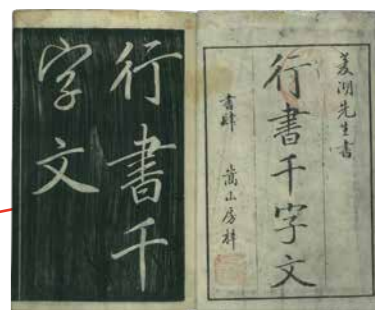 菱湖先生書
行書千字文
書肆 嵩山房梓
行書千
字文